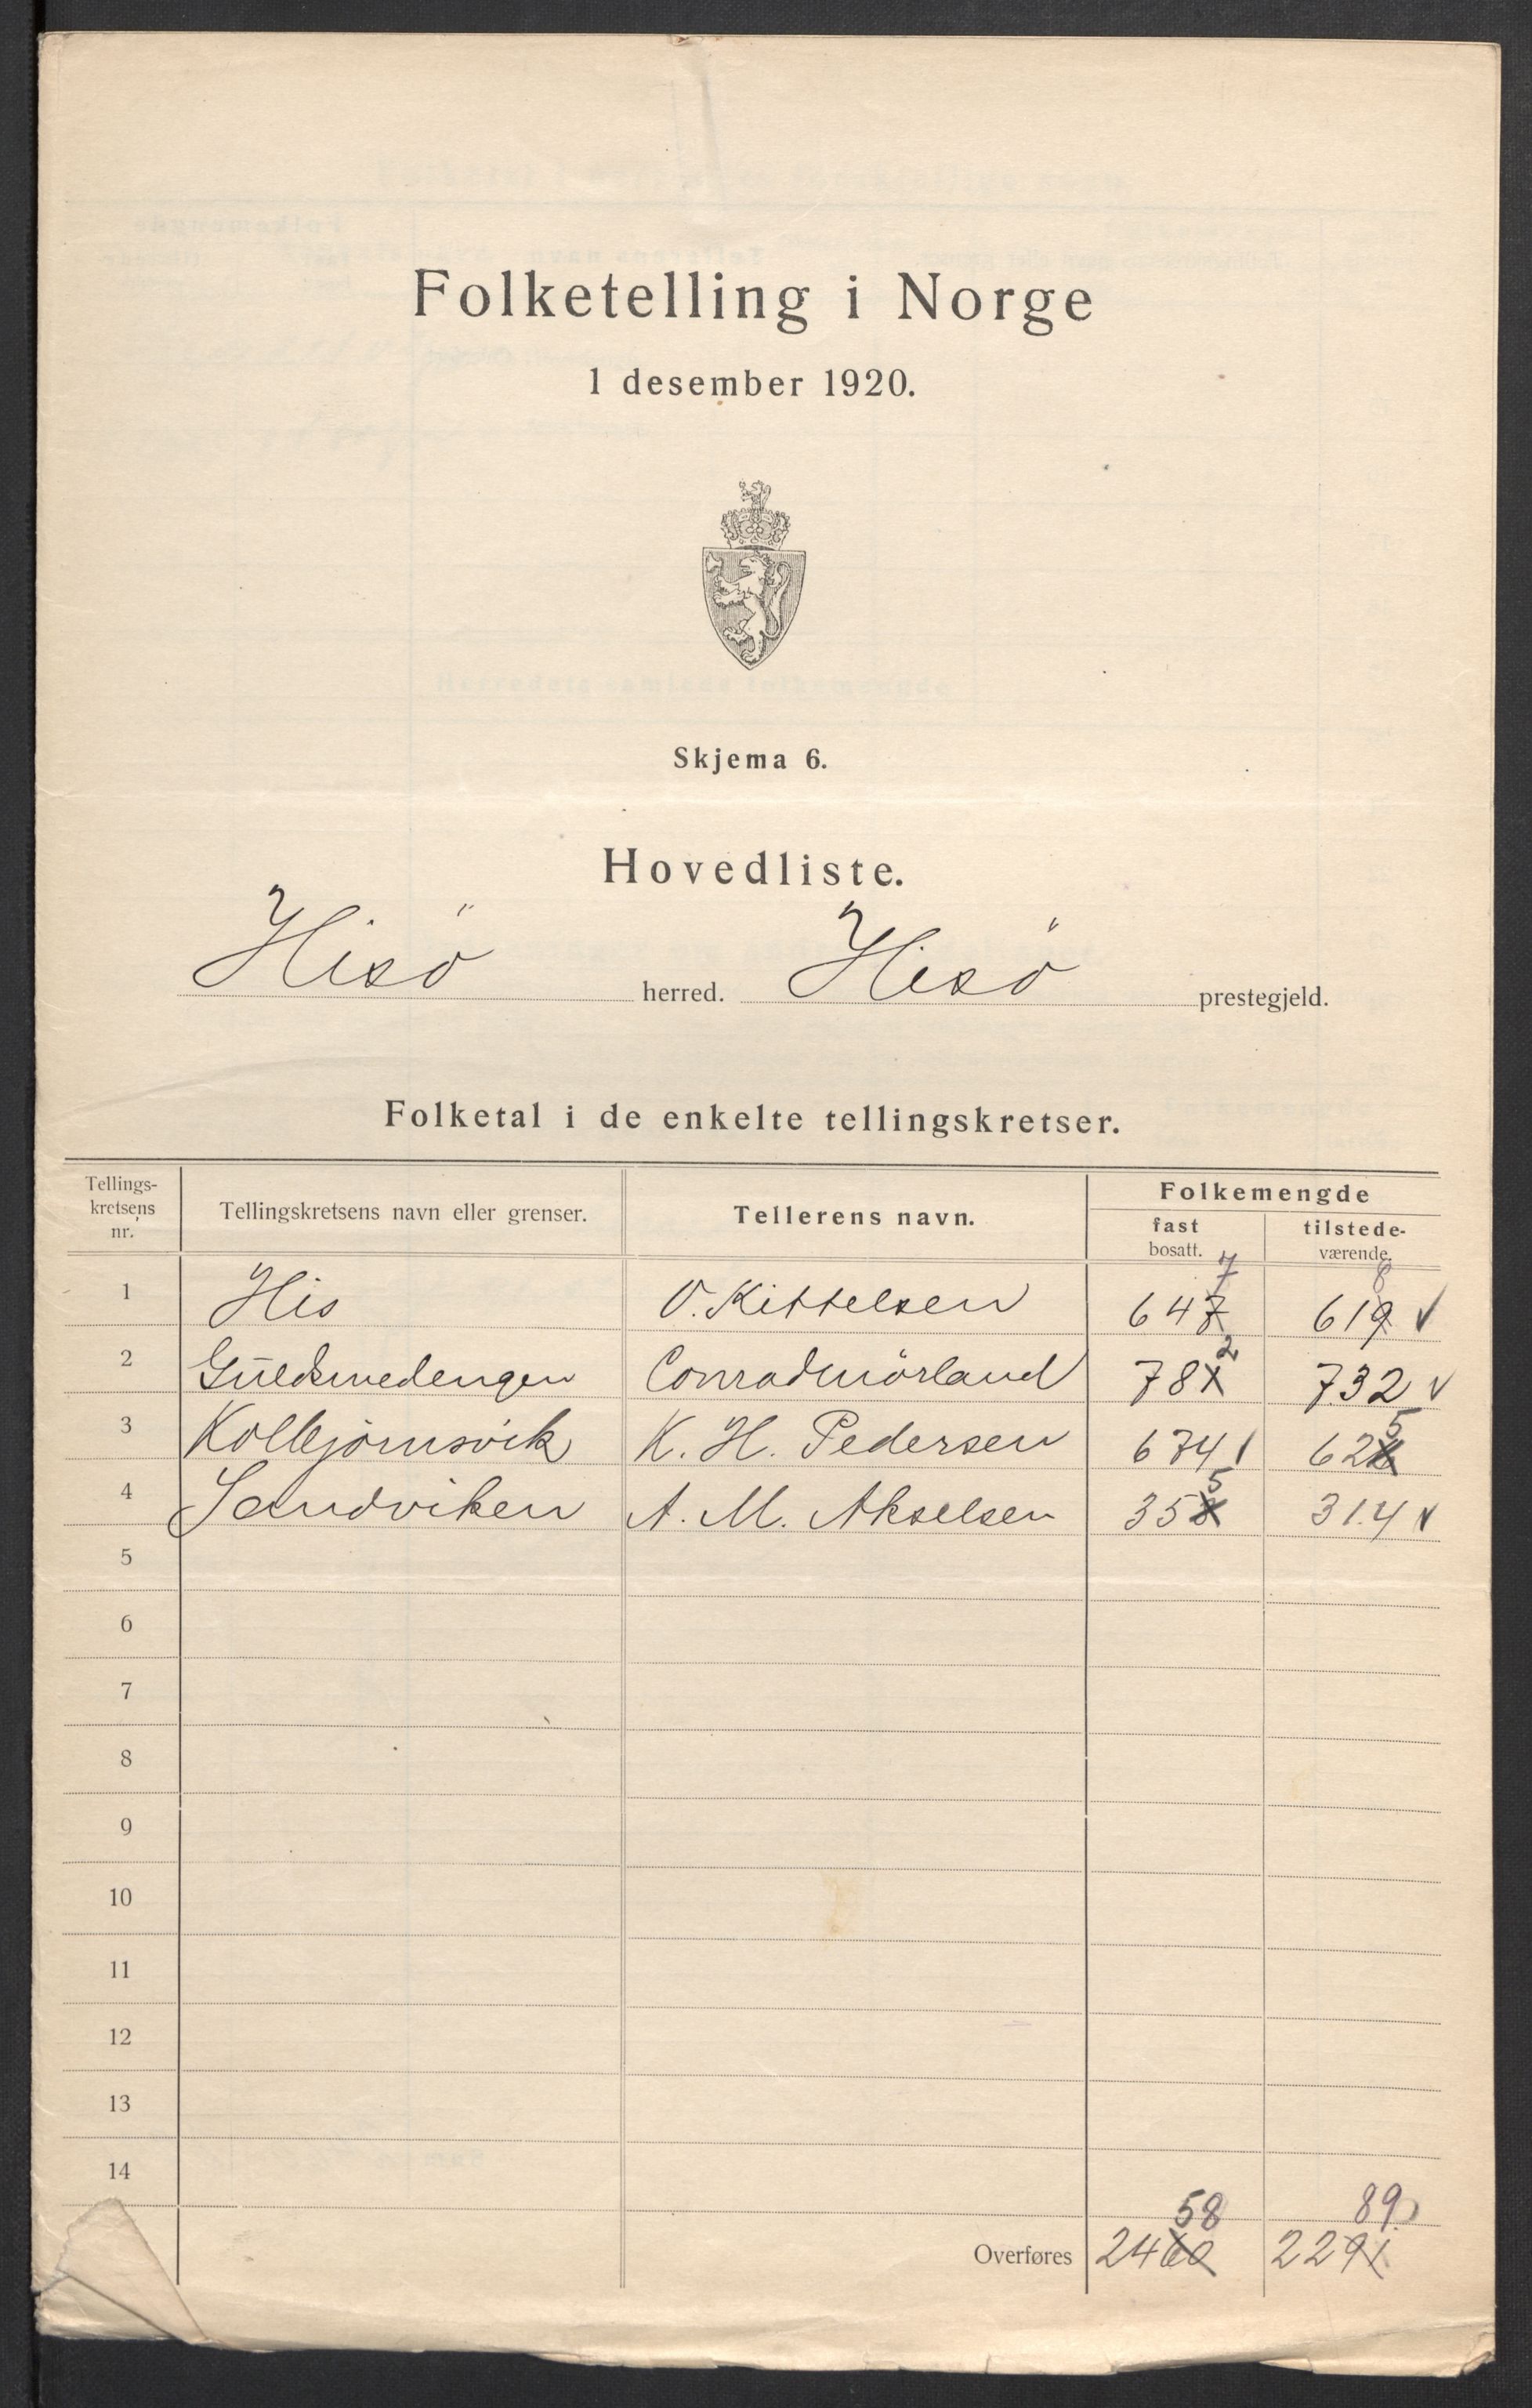 Folketelling i Norge
1 desember 1920.
Skjema 6.
Hovedliste.
Hisö herred. Hisö prestegjeld.
Folketal i de enkelte tellingskretser.
Tellings-
kretsens
nr.
Tellingskretsens navn eller grenser.
Tellerens navn.
Folkemengde
fast
bosatt.
tilstede-
værende.
7 8
1 His O. Kittelsen 647 619 √
2
2 Guldsmedengen Conrad Mörland 781 732 √
5
3 Kolbjørnsvik K. H. Pedersen 674 626
5
4 Sandviken A. M. Akselsen 358 314 √
5
6
7
8
9
10
11
12
13
14
58 89
Overføres 2460 2291